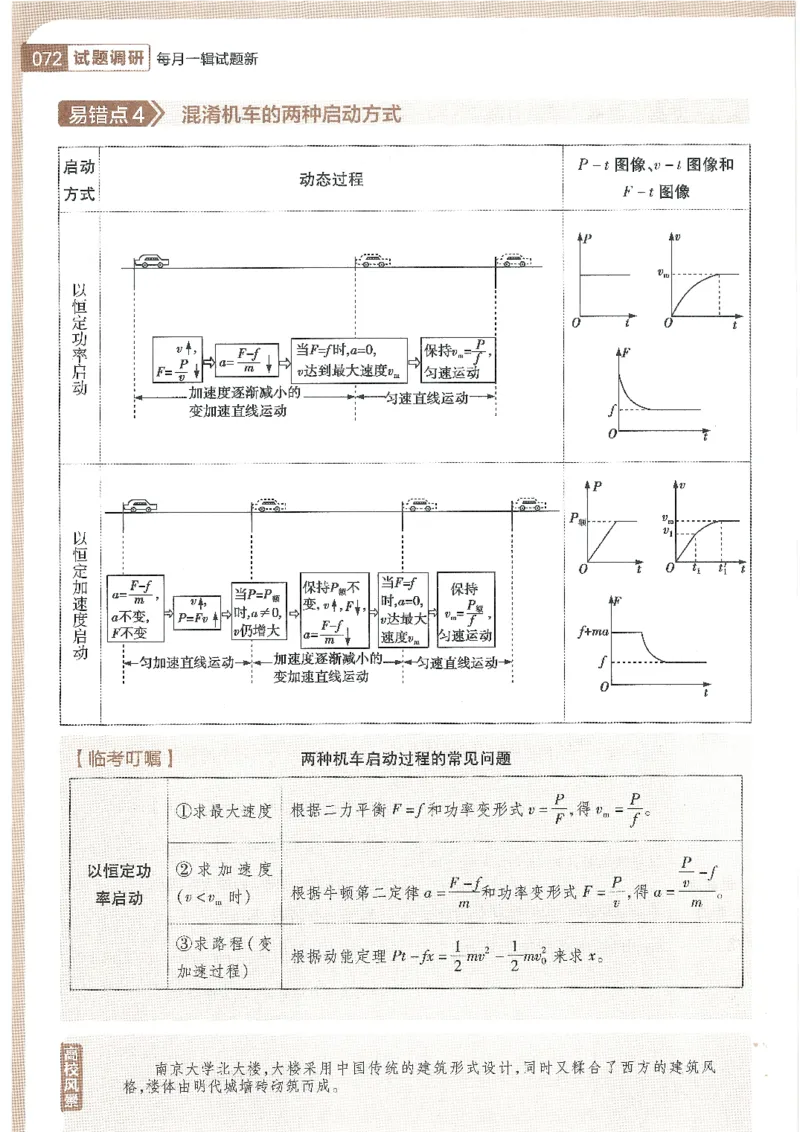 072 试题调研 每月一辑试题新
易错点4 混淆机车的两种启动方式
启动
方式
动态过程
P-t图像、v-t图像和
F-t图像
以恒定功率启动
v↑,
F=P/v↓
a=(F-f)/m↓
当F=f时,a=0,
v达到最大速度vm
保持vm=P/f,
匀速运动
加速度逐渐减小的
变加速直线运动
匀速直线运动
P
O
t
v
vm
O
t
F
f
O
t
以恒定加速度启动
a=(F-f)/m,
a不变,
F不变
v↑,
P=Fv↑
当P=P额
时,a≠0,
v仍增大
保持P额不
变,v↑,F↓,
a=(F-f)/m↓
当F=f
时,a=0,
v达最大
速度vm
保持
vm=P额/f,
匀速运动
匀加速直线运动
加速度逐渐减小的
变加速直线运动
匀速直线运动
P
P额
O
t
v
vm
v1
O
t1
t1′
t
F
f+ma
f
O
t
【临考叮嘱】 两种机车启动过程的常见问题
以恒定功
率启动
①求最大速度
根据二力平衡F=f和功率变形式v=P/F,得vm=P/f。
②求加速度
(v<vm时)
根据牛顿第二定律a=(F-f)/m和功率变形式F=P/v,得a=(P/v-f)/m。
③求路程(变
加速过程)
根据动能定理Pt-fx=1/2mv²-1/2mv₀²来求x。
高校风景
南京大学北大楼,大楼采用中国传统的建筑形式设计,同时又糅合了西方的建筑风
格,楼体由明代城墙砖砌筑而成。